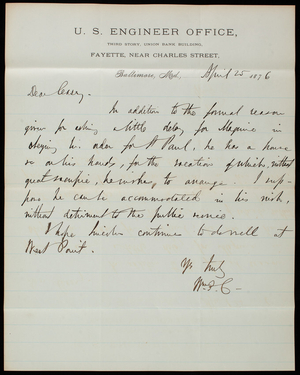 U. S. ENGINEER OFFICE,
THIRD STORY, UNION BANK BUILDING,
FAYETTE, NEAR CHARLES STREET,
Baltimore, Md., April 25 1876
Dear Casey.
In addition to the formal reason
given for asking a little delay for Maguire in
obeying his orders for St Paul, he has a house
on his hands, for the vacation of which, without
great sacrifice, he wishes to arrange. I sup-
pose he can be accommodated in his wish,
without detriment to the public service.
I hope Lincoln continues to do well at
West Point.
Yr truly
Wm P. C-